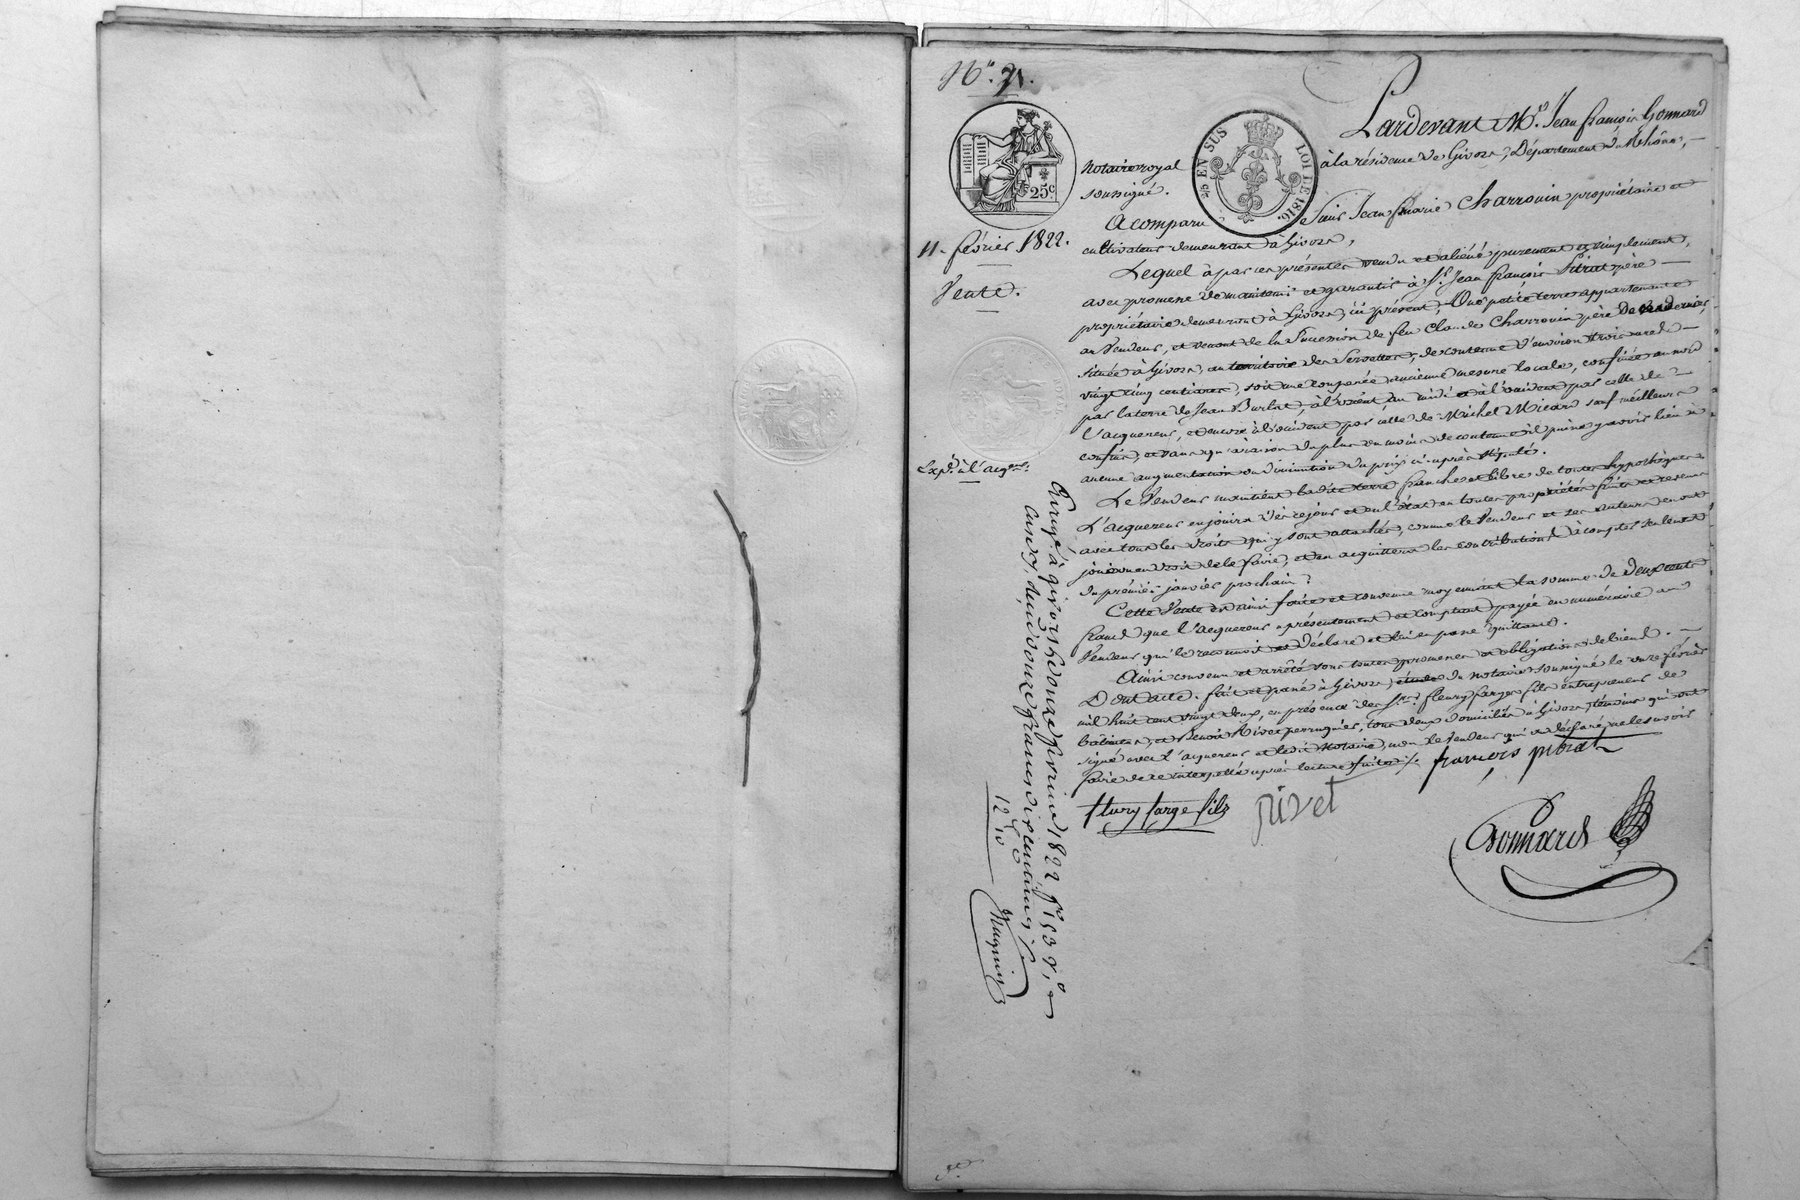 N°. 71.
Pardevant Me. Jean françois Gonnard
notaire royal
à la résidence de Givors, Département du Rhône,
soussigné.
25 EN SUS
LOI DE 1816.
25c
A comparu Sieur Jean Marie Charrouin propriétaire et
cultivateur demeurant à Givors,
11. février 1822.
Vente.
Lequel à par ces présentes vendu et aliéné purement et simplement,
avec promesse de maintenir et garantir à Sr. Jean françois Pitrat père
propriétaire demeurant à Givors, ici présent, Une petite terre appartenante
au Vendeur, et venant de la Succession de feu Claude Charrouin père de ce dernier,
située à Givors, au territoire des Servettes, de contenue d'environ trois ares
vingt cinq centiares, soit une coupenée ancienne mesure locale, confinée au nord
par la terre de Jean Burlat, à l'orient au midi et à l'occident par celle de
l'acquereur, et encore à l'occident par celle de Michel Micard sauf meilleurs
confins, et sans qu'à raison du plus ou moins de contenue il puisse y avoir lieu à
aucune augmentation ou diminution du prix ci-après stipulé.
Expon. à l'acqr.
Le Vendeur maintient ladite terre franche et libre de toutes hypothèques
L'acquereur en jouira dès ce jour et en l'état en toutes propriétés fruits et revenus
avec tous les droits qui y sont attachés, comme le Vendeur et ses auteurs en ont
joui ou eu droit de le faire, et en acquittera les contributions à compter seulement
du premier janvier prochain.
Cette Vente est ainsi faite et convenue moyennant la somme de deux cents
francs que l'acquereur a présentement et comptant payée en numéraire au
Vendeur qui le reconnoit et déclare et lui en passe quittance.
Ainsi convenu et arrêté sous toutes promesses et obligations de biens.
Dont acte. fait et passé à Givors, étude du notaire soussigné le onze février
mil huit cent vingt deux, en présence des Srs. fleury farge fils entrepreneur de
bâtimens, et Benoît Rivet perruquier, tous deux domiciliés à Givors, témoins qui ont
signé avec l'acquereur et ledit Notaire, non le Vendeur qui a déclaré ne le savoir
faire de ce interpellé après lecture faite
françois pitrat
fleury farge fils
Rivet
Gonnard
Enregé à givors le douze février 1822 fo 153
douze francs dix centimes
12f 10
Magnin